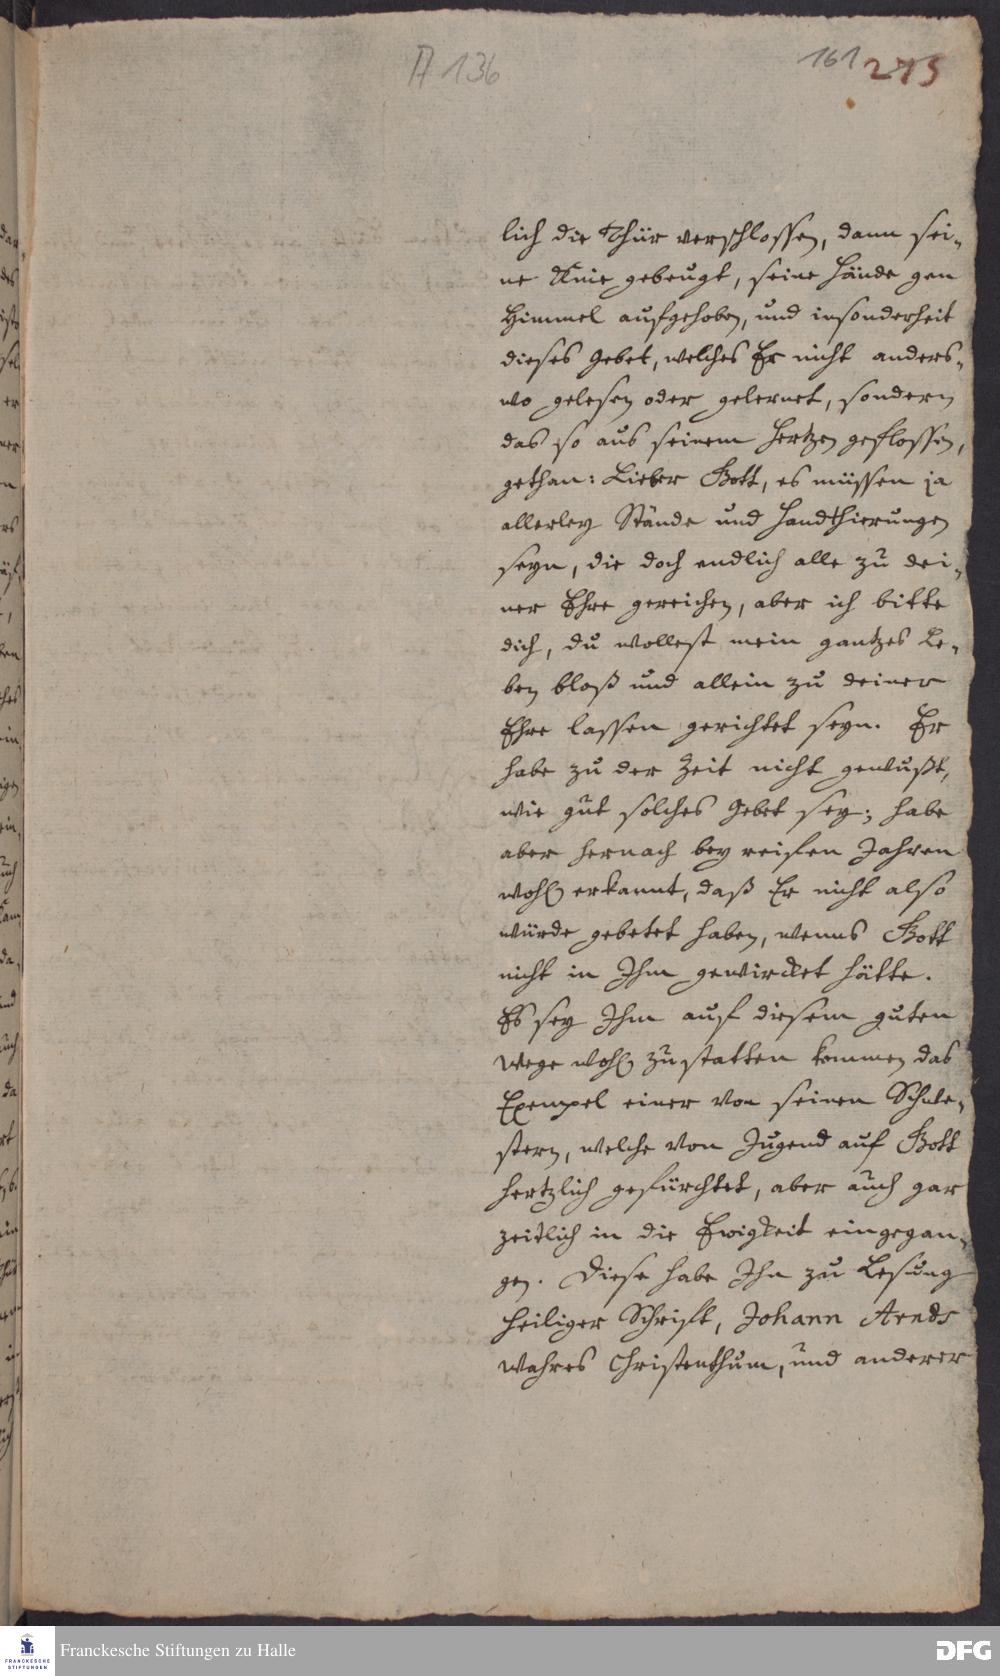 A 136
161 215
lich die Thür verschlossen, dann sei-
ne Knie gebeugt, seine Hände gen
Himmel aufgehoben, und insonderheit
dieses Gebet, welches Er nicht anders-
wo gelesen oder gelernet, sondern
das so aus seinem Hertzen geflossen,
gethan: Lieber Gott, es müssen ja
allerley Stände und Handthierungen
seyn, die doch endlich alle zu dei-
ner Ehre gereichen, aber ich bitte
dich, du wollest mein gantzes Le-
ben bloß und allein zu deiner
Ehre lassen gerichtet seyn. Er
habe zu der Zeit nicht gewußt,
wie gut solches Gebet sey; habe
aber hernach bey reifen Jahren
wohl erkannt, daß Er nicht also
würde gebetet haben, wenns Gott
nicht in Ihm gewircket hätte.
Es sey Ihm auf diesem guten
Wege wohl zu statten kommen das
Exempel einer von seinen Schwe-
stern, welche von Jugend auf Gott
hertzlich gefürchtet, aber auch gar
zeitlich in die Ewigkeit eingegan-
gen. Diese habe Ihn zu Lesung
heiliger Schrift, Johann Arnds
wahres Christenthum, und anderer
Franckesche Stiftungen zu Halle
FRANCKESCHE
STIFTUNGEN
DFG